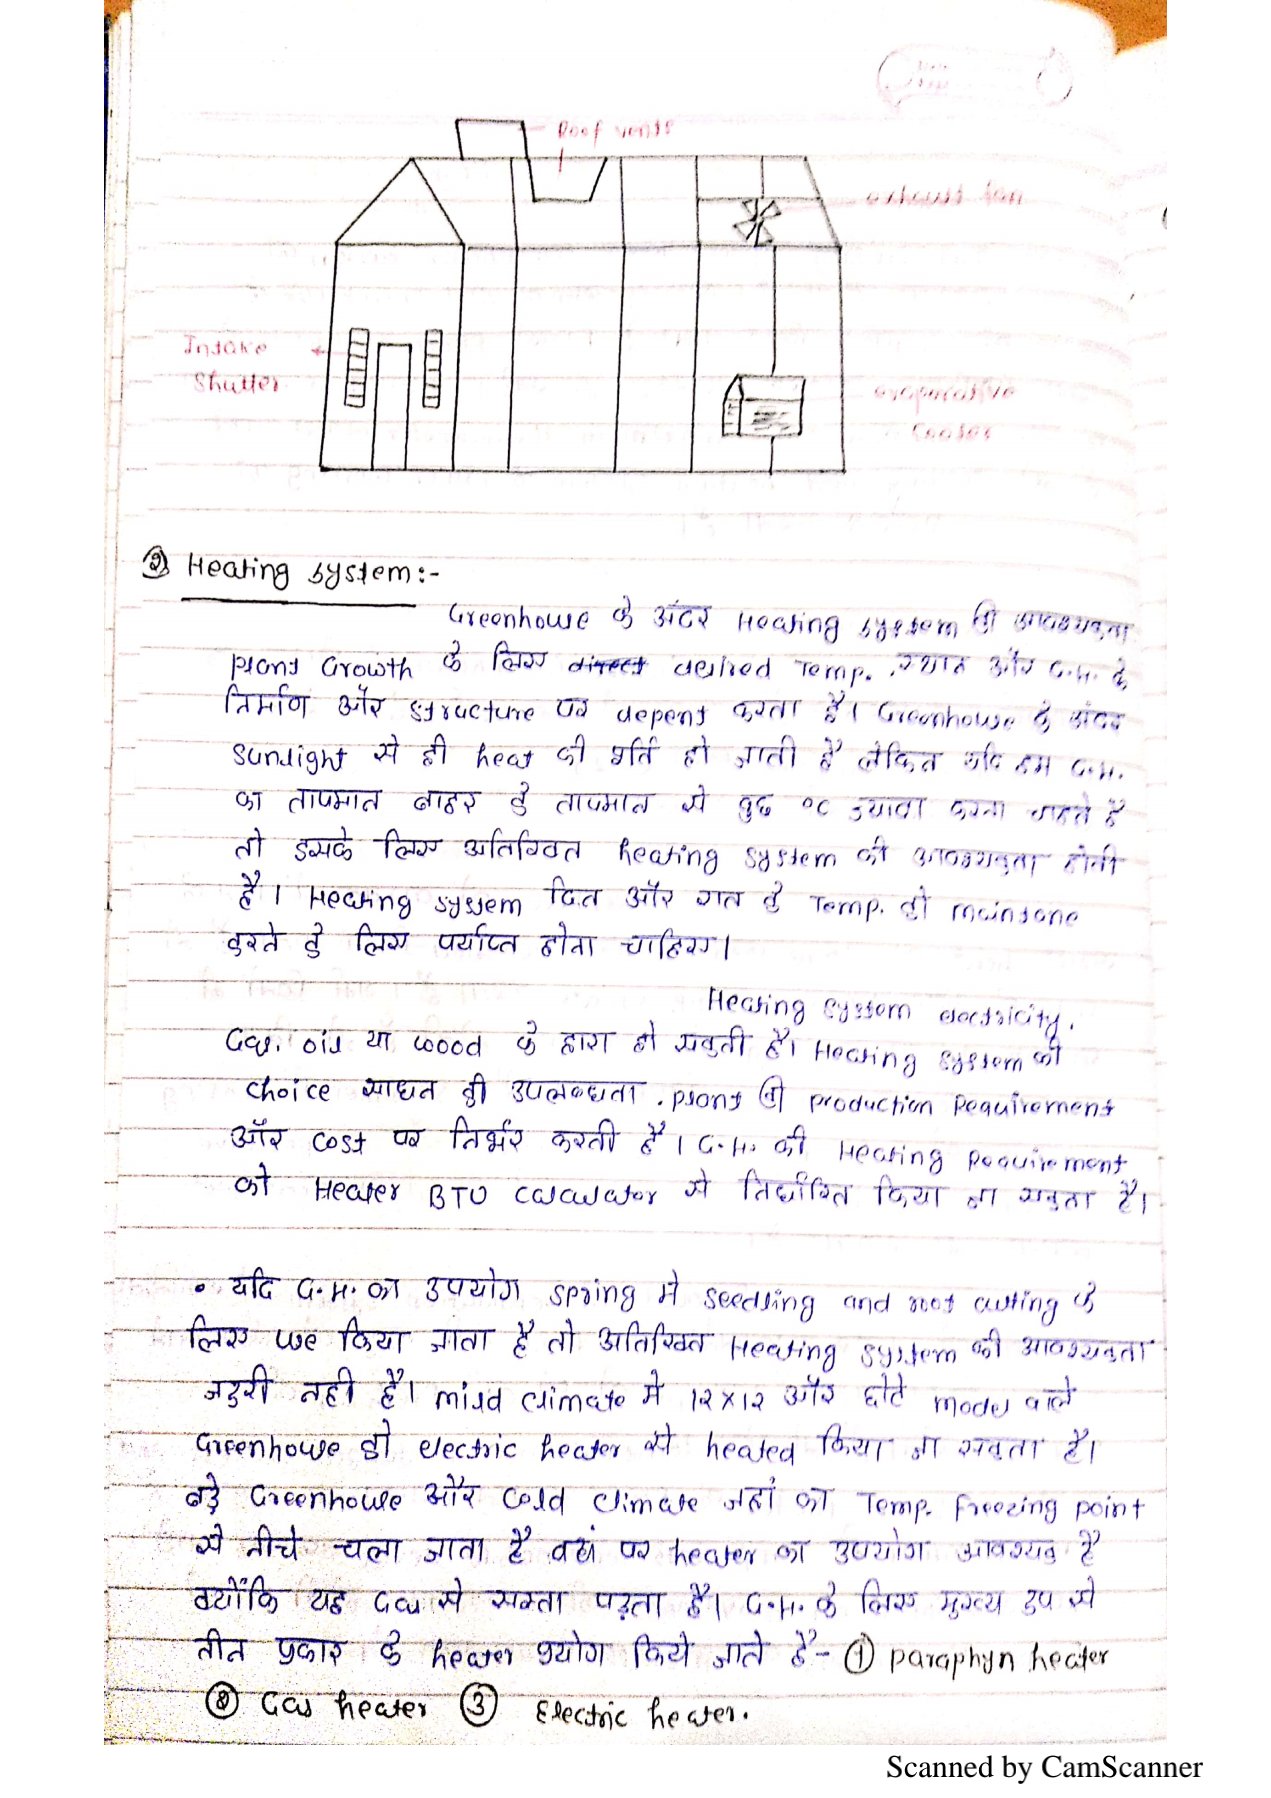 Roof vents
exhaust fan
Intake
Shutter
evaporative
Cooler
② Heating system:-
Greenhouse के अंदर Heating system की आवश्यकता
plant Growth के लिए direct desired Temp. स्थान और G.H. के
निर्माण और structure पर depent करता है। Greenhouse के अंदर
sunlight से ही heat की पूर्ति हो जाती है लेकिन यदि हम G.H.
का तापमान बाहर के तापमान से कुछ °C ज्यादा करना चाहते है
तो इसके लिए अतिरिक्त heating system की आवश्यकता होती
है। Heating system दिन और रात के Temp. को maintane
करने के लिए पर्याप्त होना चाहिए।
Heating system electricity,
Gas, oil या wood के द्वारा हो सकती है। Heating system की
choice साधन की उपलब्धता, plant की production Requirement
और cost पर निर्भर करती है। G.H. की Heating Requirement
को Heater BTU calculator से निर्धारित किया जा सकता है।
• यदि G.H. का उपयोग spring मे seedling and root cutting के
लिए use किया जाता है तो अतिरिक्त Heating system की आवश्यकता
जरुरी नही है। mild climate मे 12x12 और छोटे model वाले
Greenhouse को electric heater से heated किया जा सकता है।
बड़े Greenhouse और cold climate जहां का Temp. freezing point
से नीचे चला जाता है वहां पर heater का उपयोग आवश्यक है
क्योंकि यह Gas से सस्ता पड़ता है। G.H. के लिए मुख्य रुप से
तीन प्रकार के heater प्रयोग किये जाते है- ① paraphyn heater
② Gas heater ③ Electric heater.
Scanned by CamScanner